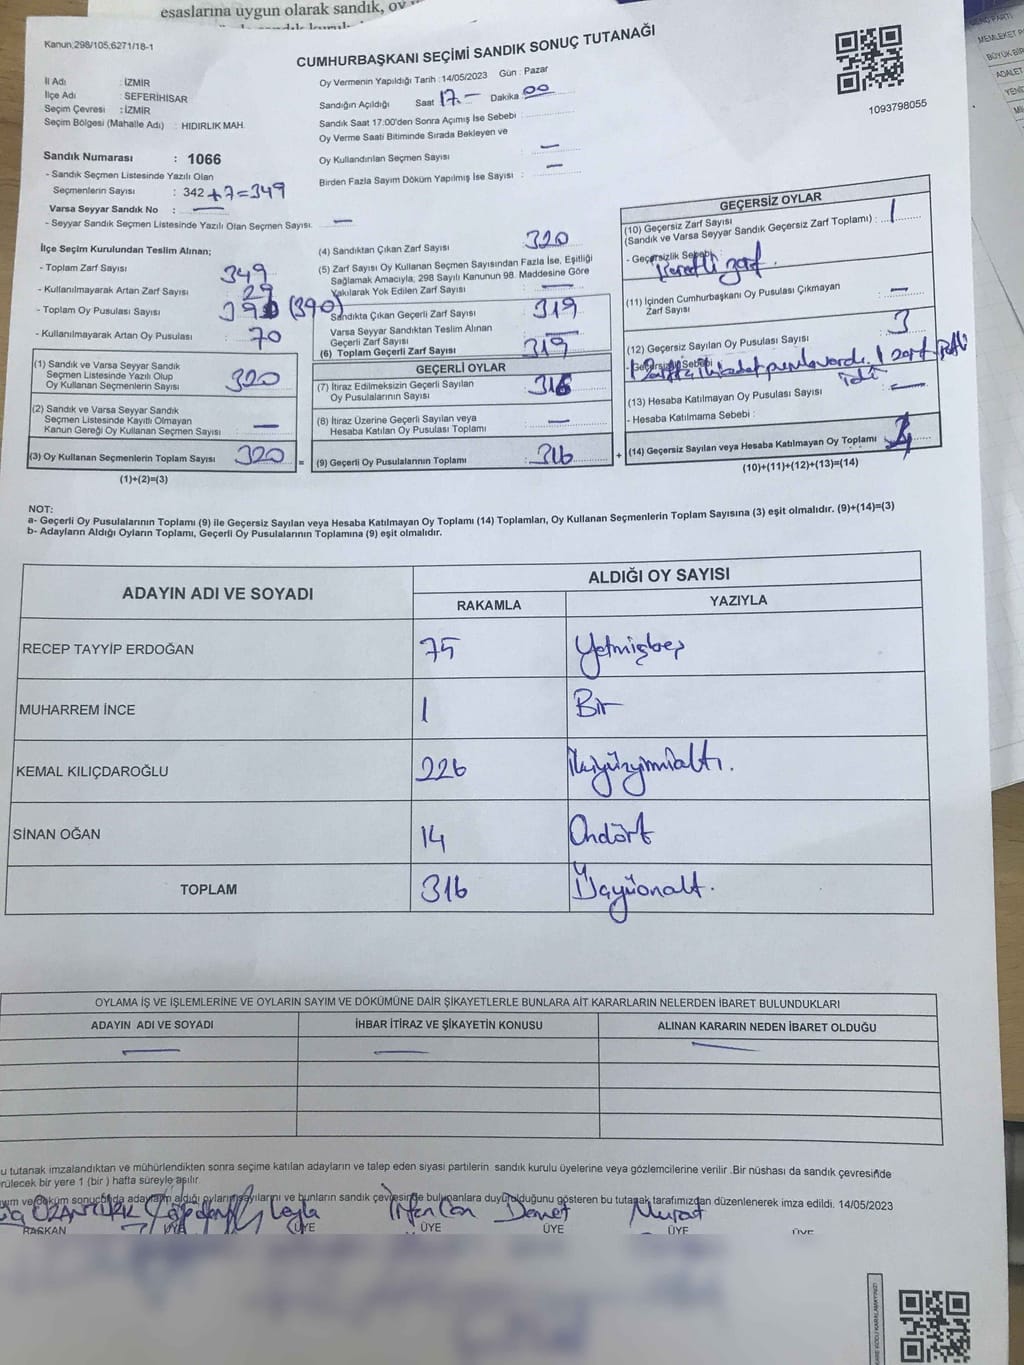 esaslarına uygun olarak sandık, oy
Kanun;298/105,6271/18-1
CUMHURBAŞKANI SEÇİMİ SANDIK SONUÇ TUTANAĞI
1093798055
İl Adı : İZMİR
İlçe Adı : SEFERİHİSAR
Seçim Çevresi : İZMİR
Seçim Bölgesi (Mahalle Adı) : HIDIRLIK MAH.
Oy Vermenin Yapıldığı Tarih :14/05/2023 Gün : Pazar
Sandığın Açıldığı Saat 17.- Dakika 00
Sandık Saat 17:00'den Sonra Açımış İse Sebebi :
Oy Verme Saati Bitiminde Sırada Bekleyen ve
Oy Kullandırılan Seçmen Sayısı : —
Birden Fazla Sayım Döküm Yapılmış İse Sayısı : —
Sandık Numarası : 1066
- Sandık Seçmen Listesinde Yazılı Olan
Seçmenlerin Sayısı : 342 +7=349
Varsa Seyyar Sandık No : —
- Seyyar Sandık Seçmen Listesinde Yazılı Olan Seçmen Sayısı: —
İlçe Seçim Kurulundan Teslim Alınan;
- Toplam Zarf Sayısı : 349
- Kullanılmayarak Artan Zarf Sayısı : 29
- Toplam Oy Pusulası Sayısı : (390)
- Kullanılmayarak Artan Oy Pusulası : 70
(1) Sandık ve Varsa Seyyar Sandık
Seçmen Listesinde Yazılı Olup
Oy Kullanan Seçmenlerin Sayısı : 320
(2) Sandık ve Varsa Seyyar Sandık
Seçmen Listesinde Kayıtlı Olmayan
Kanun Gereği Oy Kullanan Seçmen Sayısı : —
(3) Oy Kullanan Seçmenlerin Toplam Sayısı : 320
(1)+(2)=(3)
(4) Sandıktan Çıkan Zarf Sayısı : 320
(5) Zarf Sayısı Oy Kullanan Seçmen Sayısından Fazla İse, Eşitliği
Sağlamak Amacıyla; 298 Sayılı Kanunun 98. Maddesine Göre
Yakılarak Yok Edilen Zarf Sayısı : —
Sandıkta Çıkan Geçerli Zarf Sayısı : 319
Varsa Seyyar Sandıktan Teslim Alınan
Geçerli Zarf Sayısı : —
(6) Toplam Geçerli Zarf Sayısı : 319
GEÇERLİ OYLAR
(7) İtiraz Edilmeksizin Geçerli Sayılan
Oy Pusulalarının Sayısı : 316
(8) İtiraz Üzerine Geçerli Sayılan veya
Hesaba Katılan Oy Pusulası Toplamı : —
= (9) Geçerli Oy Pusulalarının Toplamı : 316
GEÇERSİZ OYLAR
(10) Geçersiz Zarf Sayısı
(Sandık ve Varsa Seyyar Sandık Geçersiz Zarf Toplamı) : 1
- Geçersizlik Sebebi : zarf.
(11) İçinden Cumhurbaşkanı Oy Pusulası Çıkmayan
Zarf Sayısı : —
(12) Geçersiz Sayılan Oy Pusulası Sayısı : 3
- Geçersizlik Sebebi 1 zarfta vardı. 1 zarf
idi
(13) Hesaba Katılmayan Oy Pusulası Sayısı : —
- Hesaba Katılmama Sebebi :
+ (14) Geçersiz Sayılan veya Hesaba Katılmayan Oy Toplamı : 4
(10)+(11)+(12)+(13)=(14)
NOT:
a- Geçerli Oy Pusulalarının Toplamı (9) ile Geçersiz Sayılan veya Hesaba Katılmayan Oy Toplamı (14) Toplamları, Oy Kullanan Seçmenlerin Toplam Sayısına (3) eşit olmalıdır. (9)+(14)=(3)
b- Adayların Aldığı Oyların Toplamı, Geçerli Oy Pusulalarının Toplamına (9) eşit olmalıdır.
ADAYIN ADI VE SOYADI
ALDIĞI OY SAYISI
RAKAMLA YAZIYLA
RECEP TAYYİP ERDOĞAN 75 Yetmişbeş
MUHARREM İNCE 1 Bir
KEMAL KILIÇDAROĞLU 226 İkiyüzyirmialtı.
SİNAN OĞAN 14 Ondört
TOPLAM 316 Üçyüzonaltı.
OYLAMA İŞ VE İŞLEMLERİNE VE OYLARIN SAYIM VE DÖKÜMÜNE DAİR ŞİKAYETLERLE BUNLARA AİT KARARLARIN NELERDEN İBARET BULUNDUKLARI
ADAYIN ADI VE SOYADI İHBAR İTİRAZ VE ŞİKAYETİN KONUSU ALINAN KARARIN NEDEN İBARET OLDUĞU
— — —
u tutanak imzalandıktan ve mühürlendikten sonra seçime katılan adayların ve talep eden siyasi partilerin sandık kurulu üyelerine veya gözlemcilerine verilir .Bir nüshası da sandık çevresinde
rülecek bir yere 1 (bir ) hafta süreyle asılır.
ım ve döküm sonucunda adayların aldığı oyların sayılarını ve bunların sandık çevresinde bulunanlara duyurulduğunu gösteren bu tutanak tarafımızdan düzenlenerek imza edildi. 14/05/2023
ÖZANTÜRK Leyla İrfan Can Demet Murat
BAŞKAN ÜYE ÜYE ÜYE ÜYE ÜYE ÜYE